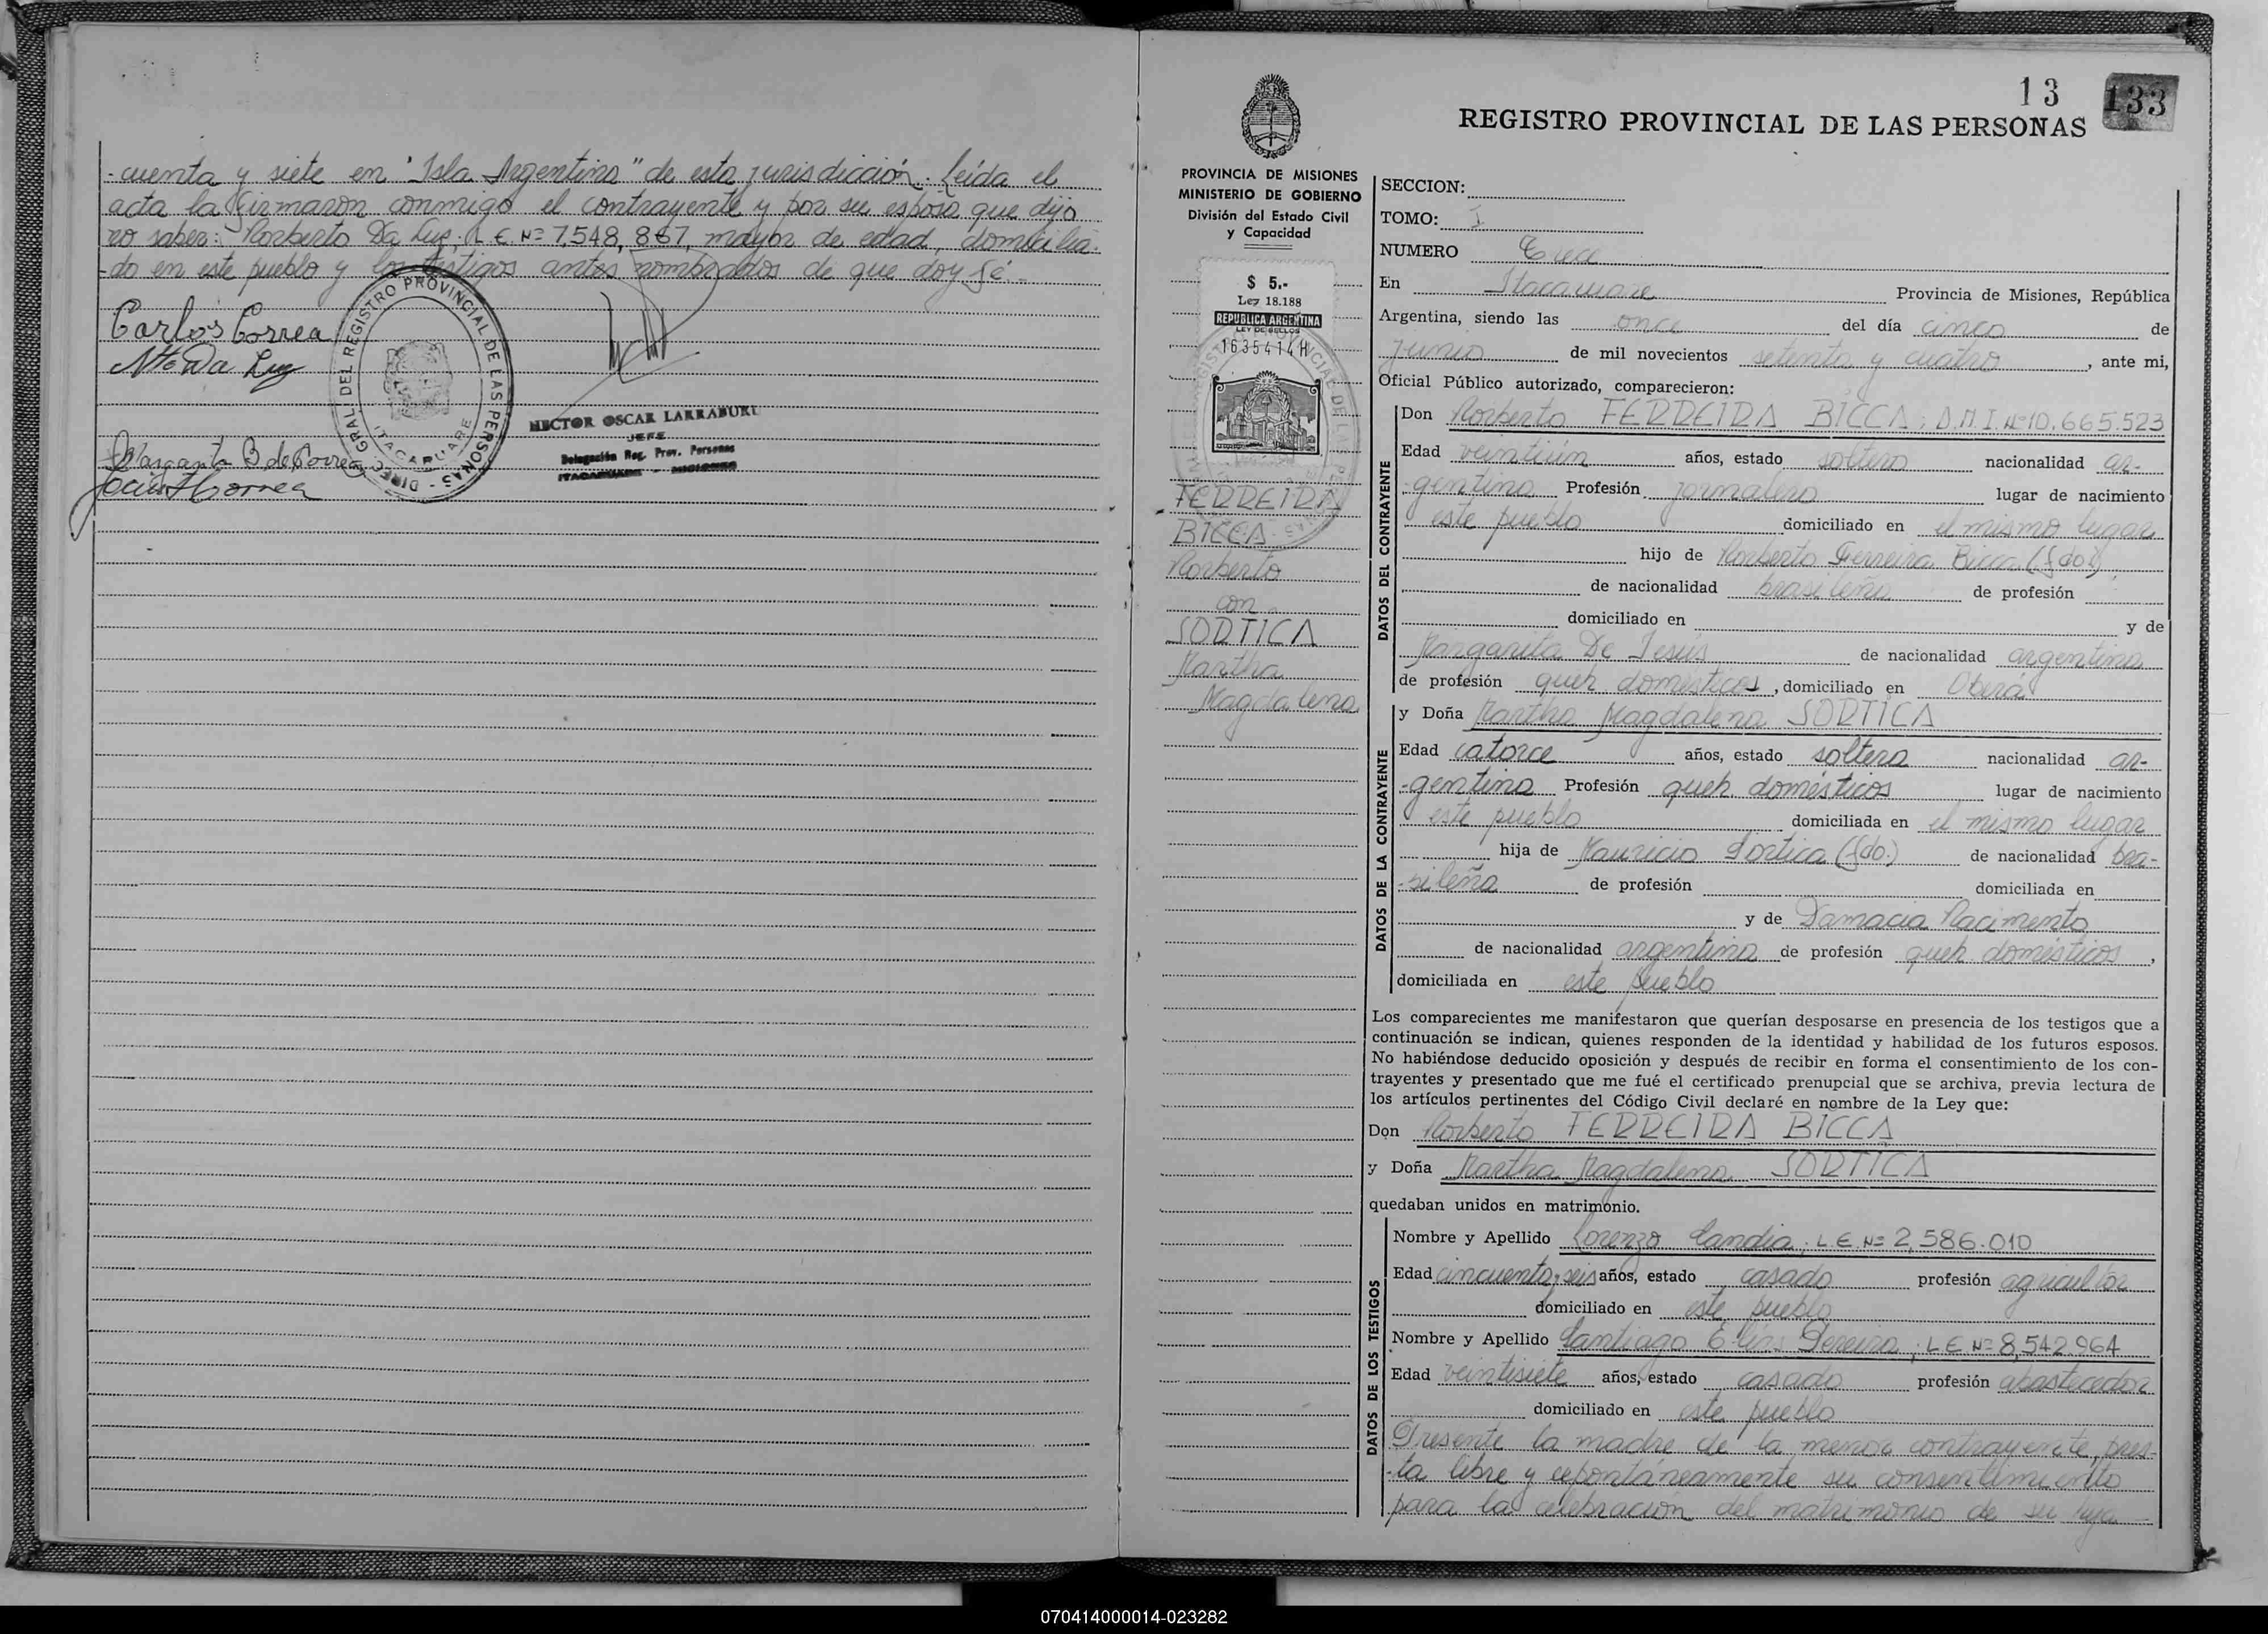 -cuenta y siete en "Isla Argentina" de esta jurisdicción. Leída el
acta la firmaron conmigo el contrayente y por su esposa que dijo
no saber: Norberto Da Luz; L.E.Nº 7.548,867, mayor de edad, domicilia-
do en este pueblo y los testigos antes nombrados de que doy fé.-
Carlos Correa
Nto Da Luz
DIREC. GRAL. DEL REGISTRO PROVINCIAL DE LAS PERSONAS
ITACARUARE
HECTOR OSCAR LARRABURU
JEFE
Delegación Reg. Prov. Personas
ITACARUARE - MISIONES
Margarita B de Correa
Correa
13
133
REGISTRO PROVINCIAL DE LAS PERSONAS
PROVINCIA DE MISIONES
MINISTERIO DE GOBIERNO
División del Estado Civil
y Capacidad
$ 5.-
Ley 18.188
REPUBLICA ARGENTINA
LEY DE SELLOS
1635414H
FERREIRA
BICCA
Norberto
con
SORTICA
Martha
Magdalena
SECCION:
TOMO: I
NUMERO Trece
En Itacaruare Provincia de Misiones, República
Argentina, siendo las once del día cinco de
junio de mil novecientos setenta y cuatro, ante mi,
Oficial Público autorizado, comparecieron:
DATOS DEL CONTRAYENTE
Don Norberto FERREIRA BICCA; D.N.I.Nº10.665.523
Edad veintiún años, estado soltero nacionalidad ar-
-gentina Profesión jornalero lugar de nacimiento
este pueblo domiciliado en el mismo lugar
hijo de Norberto Ferreira Bicca (fdo.)
de nacionalidad brasileña de profesión
domiciliado en y de
Margarita De Jesús de nacionalidad argentina
de profesión queh domésticos, domiciliado en Oberá
DATOS DE LA CONTRAYENTE
y Doña Martha Magdalena SORTICA
Edad catorce años, estado soltera nacionalidad ar-
-gentina Profesión queh domésticos lugar de nacimiento
este pueblo domiciliada en el mismo lugar
hija de Mauricio Sortica (fdo.) de nacionalidad bra-
-sileña de profesión domiciliada en
y de Damacia Nacimento
de nacionalidad argentina de profesión queh domésticos,
domiciliada en este pueblo
Los comparecientes me manifestaron que querían desposarse en presencia de los testigos que a
continuación se indican, quienes responden de la identidad y habilidad de los futuros esposos.
No habiéndose deducido oposición y después de recibir en forma el consentimiento de los con-
trayentes y presentado que me fué el certificado prenupcial que se archiva, previa lectura de
los artículos pertinentes del Código Civil declaré en nombre de la Ley que:
Don Norberto FERREIRA BICCA
y Doña Martha Magdalena SORTICA
quedaban unidos en matrimonio.
DATOS DE LOS TESTIGOS
Nombre y Apellido Lorenzo Candia; L.E.Nº 2,586.010
Edad cincuenta y seis años, estado casado profesión agricultor
domiciliado en este pueblo
Nombre y Apellido Santiago Elías Pereira; L E Nº 8,542.964
Edad veintisiete años, estado casado profesión abastecedor
domiciliado en este pueblo
Presente la madre de la menor contrayente, pres-
-ta libre y espontáneamente su consentimiento
para la celebración del matrimonio de su hija
070414000014-023282